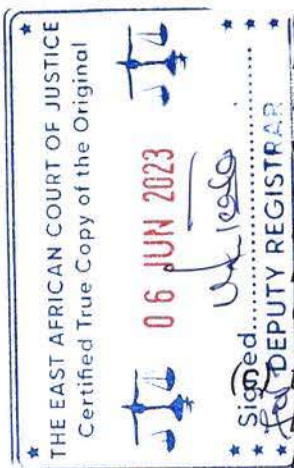 THE EAST AFRICAN COURT OF JUSTICE
Certified True Copy of the Original
06 JUN 2023
Signed..................
for DEPUTY REGISTRAR